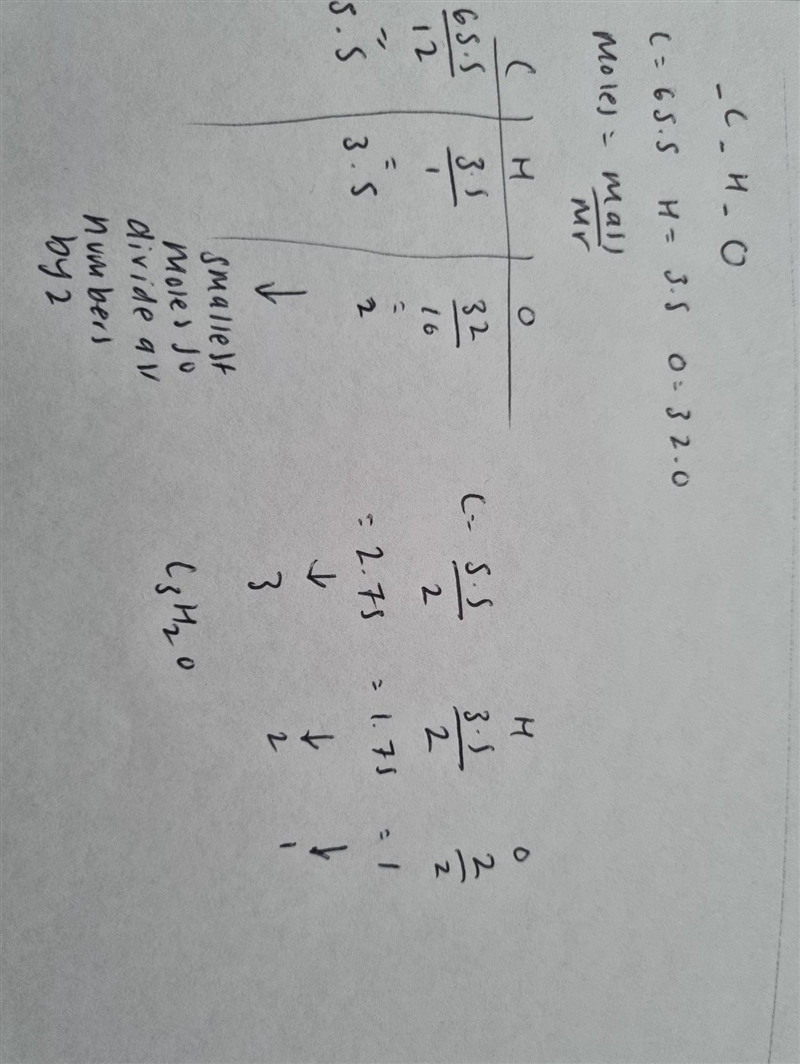 - C - H - O
C = 65.5 H = 3.5 O = 32.0
Moles = mass
Mr
C H O
65.5 3.5 32
12 1 16
= = =
5.5 3.5 2
↓
smallest
moles so
divide all
numbers
by 2
C = 5.5 H 3.5 O 2
2 2 2
= 2.75 = 1.75 = 1
↓ ↓ ↓
3 2 1
C3H2O